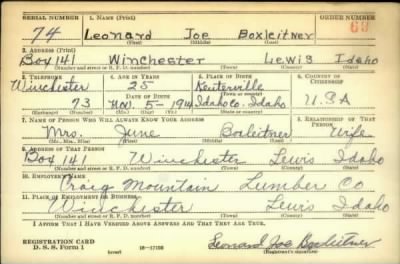 SERIAL NUMBER 1. NAME (Print) ORDER NUMBER
74 Leonard Joe Boxleitner 69
(First) (Middle) (Last)
2. ADDRESS (Print)
Box 141 Winchester Lewis Idaho
(Number and street or R. F. D. number) (Town) (County) (State)
3. TELEPHONE 4. AGE IN YEARS 5. PLACE OF BIRTH 6. COUNTRY OF CITIZENSHIP
Winchester 25 Keuterville
DATE OF BIRTH (Town or county)
73 5-1914 Idaho Co. Idaho U.S.A
(Exchange) (Number) (Mo.) (Day) (Yr.) (State or country)
7. NAME OF PERSON WHO WILL ALWAYS KNOW YOUR ADDRESS 8. RELATIONSHIP OF THAT PERSON
Mrs. June Boxleitner Wife
(Mr., Mrs., Miss) (First) (Middle) (Last)
9. ADDRESS OF THAT PERSON
Box 141 Winchester Lewis Idaho
(Number and street or R. F. D. number) (Town) (County) (State)
10. EMPLOYER'S NAME
Craig Mountain Lumber Co
11. PLACE OF EMPLOYMENT OR BUSINESS
Winchester Lewis Idaho
(Number and street or R. F. D. number) (Town) (County) (State)
I AFFIRM THAT I HAVE VERIFIED ABOVE ANSWERS AND THAT THEY ARE TRUE.
REGISTRATION CARD
D. S. S. FORM 1 (over) Leonard Joe Boxleitner
(Registrant's signature)